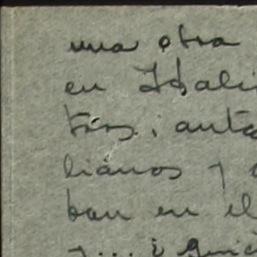 una obra
en Itali
tros; anta
lianos y
ban en el
y... ¿